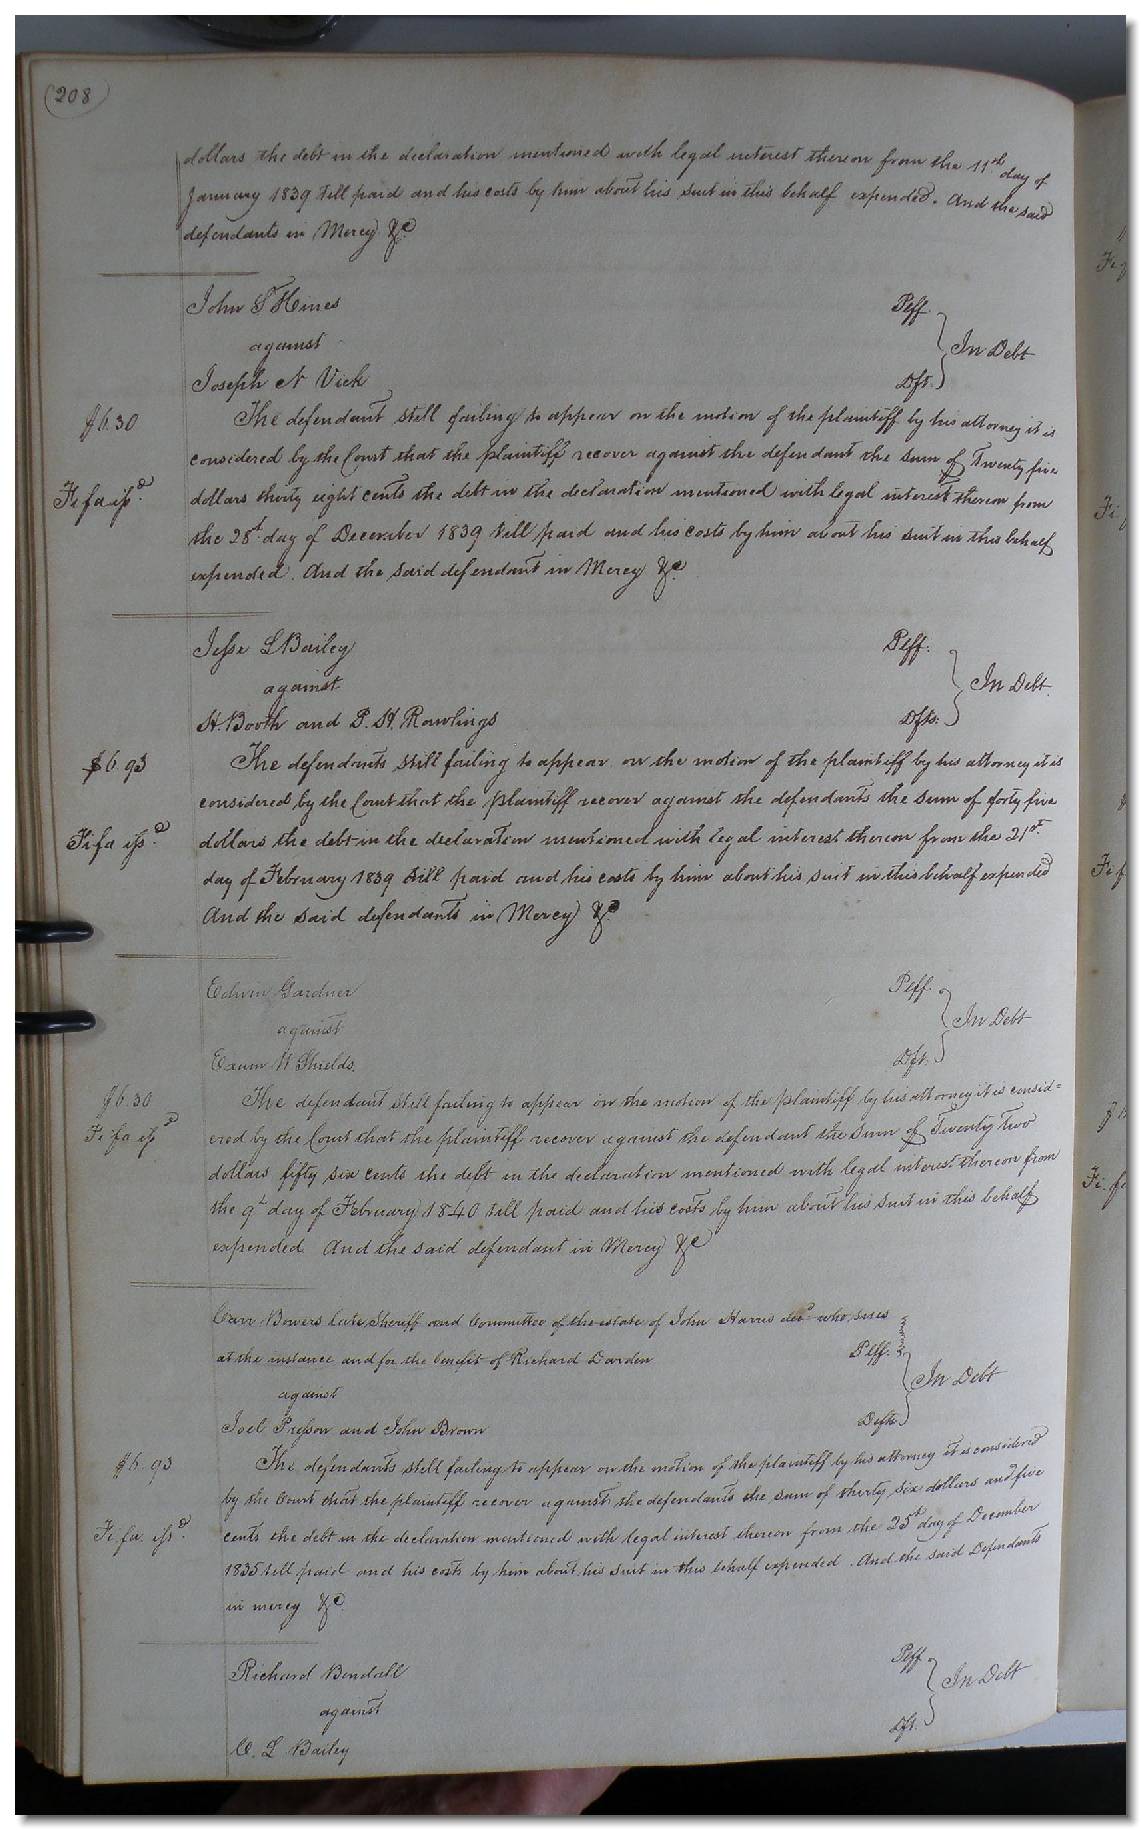 (208)
dollars the debt in the declaration mentioned with legal interest thereon from the 11th day of
January 1839 till paid and his costs by him about his suit in this behalf expended. And the said
defendants in Mercy &c
John S Hines Plff.
against In Debt
Joseph N Vick Dft.
$6.30 The defendant still failing to appear on the motion of the plaintiff by his attorney it is
considered by the Court that the plaintiff recover against the defendant the sum of Twenty five
Fi fa issd. dollars thirty eight cents the debt in the declaration mentioned with legal interest thereon from
the 28t day of December 1839 till paid and his costs by him about his suit in this behalf
expended. And the said defendant in Mercy &c.
Jesse L Bailey Plff.
against In Debt.
H. Booth and P. H. Rawlings Dfts.
$6.93 The defendants still failing to appear on the motion of the plaintiff by his attorney it is
considered by the Court that the plaintiff recover against the defendants the sum of forty five
Fi fa issd. dollars the debt in the declaration mentioned with legal interest thereon from the 21st
day of February 1839 till paid and his costs by him about his suit in this behalf expended
And the said defendants in Mercy &c
Edwin Gardner Plff.
against In Debt
Exum W Shields. Dft.
$6.30 The defendant still failing to appear on the motion of the plaintiff by his attorney it is consid=
Fi fa issd ered by the Court that the plaintiff recover against the defendant the sum of Twenty two
dollars fifty six cents the debt in the declaration mentioned with legal interest thereon from
the 9t day of February 1840 till paid and his costs by him about his suit in this behalf
expended. And the said defendant in Mercy &c
Carr Bowers late Sheriff and Committee of the estate of John Harris decd who sues
at the instance and for the benefit of Richard Darden Plff.
against In Debt
Joel Presson and John Brown Defts.
$6.93 The defendants still failing to appear on the motion of the plaintiff by his attorney it is considered
by the Court that the plaintiff recover against the defendants the sum of thirty six dollars and five
Fi. fa. issd. cents the debt in the declaration mentioned with legal interest thereon from the 25t day of December
1835 till paid and his costs by him about his suit in this behalf expended. And the said Defendants
in mercy &c.
Richard Bendall Plff.
against In Debt
C. L Bailey Dft.